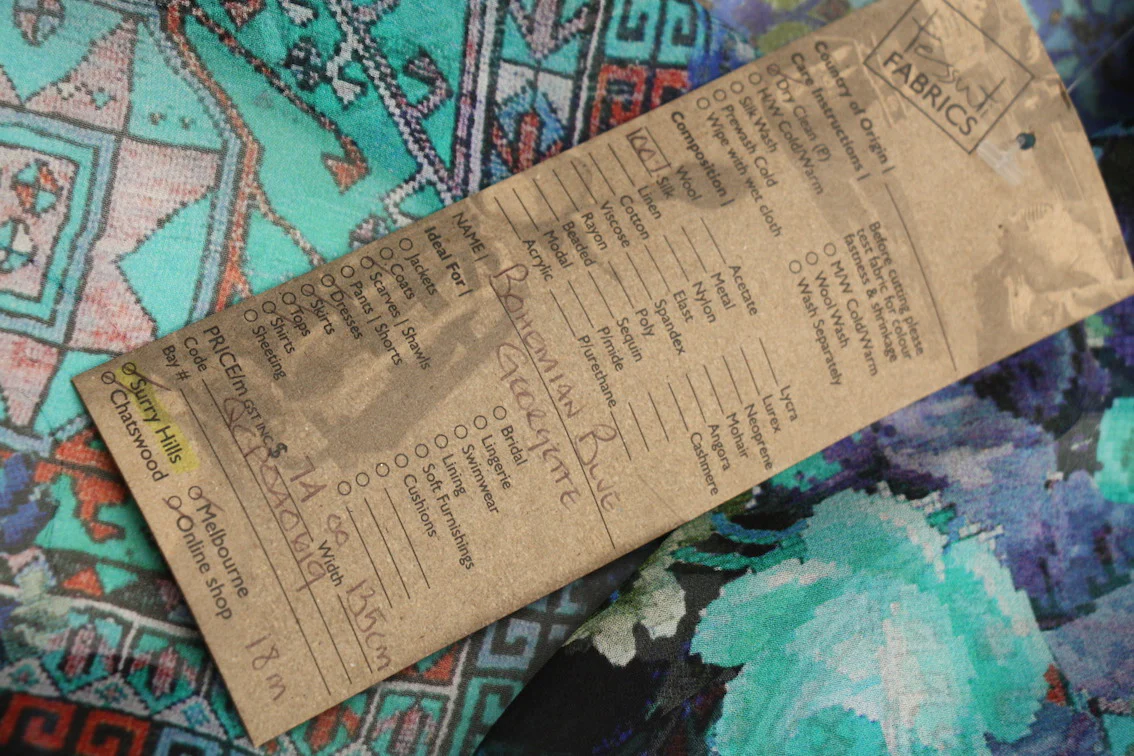 Tessuti
FABRICS
Country of Origin |
Care Instructions |
Dry Clean (P)
H/W Cold/Warm
Silk Wash
Prewash Cold
Wipe with wet cloth
Before cutting please
test fabric for colour
fastness & shrinkage
M/W Cold/Warm
Wool Wash
Wash Separately
Composition |
Wool
100 Silk
Linen
Cotton
Viscose
Rayon
Beaded
Modal
Acrylic
Acetate
Metal
Nylon
Elast
Spandex
Poly
Sequin
P/mide
P/urethane
Lycra
Lurex
Neoprene
Mohair
Angora
Cashmere
NAME | BOHEMIAN BLUE
GEORGETTE
Ideal For |
Jackets
Coats
Scarves | Shawls
Pants | Shorts
Dresses
Skirts
Tops
Shirts
Sheeting
Bridal
Lingerie
Swimwear
Lining
Soft Furnishings
Cushions
PRICE/m GST INC $ 74.00 Width 135cm
Code
Bay #
Surry Hills
Chatswood
Melbourne
Online shop
18m